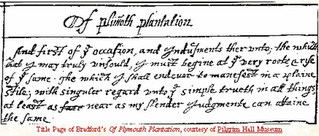 Of plim̃oth plantation.
And first of yᵉ occasion, and Indusments ther unto; the which
that I may truly unfould, I must begine at yᵉ very roote & rise
of yᵉ same. The which I shall endevor to manefest in a plaine
stile; with singuler regard unto yᵉ simple trueth in all things,
at least as farr near as my slender Judgmente can attaine
the same.
Title Page of Bradford's Of Plymouth Plantation, courtesy of Pilgrim Hall Museum